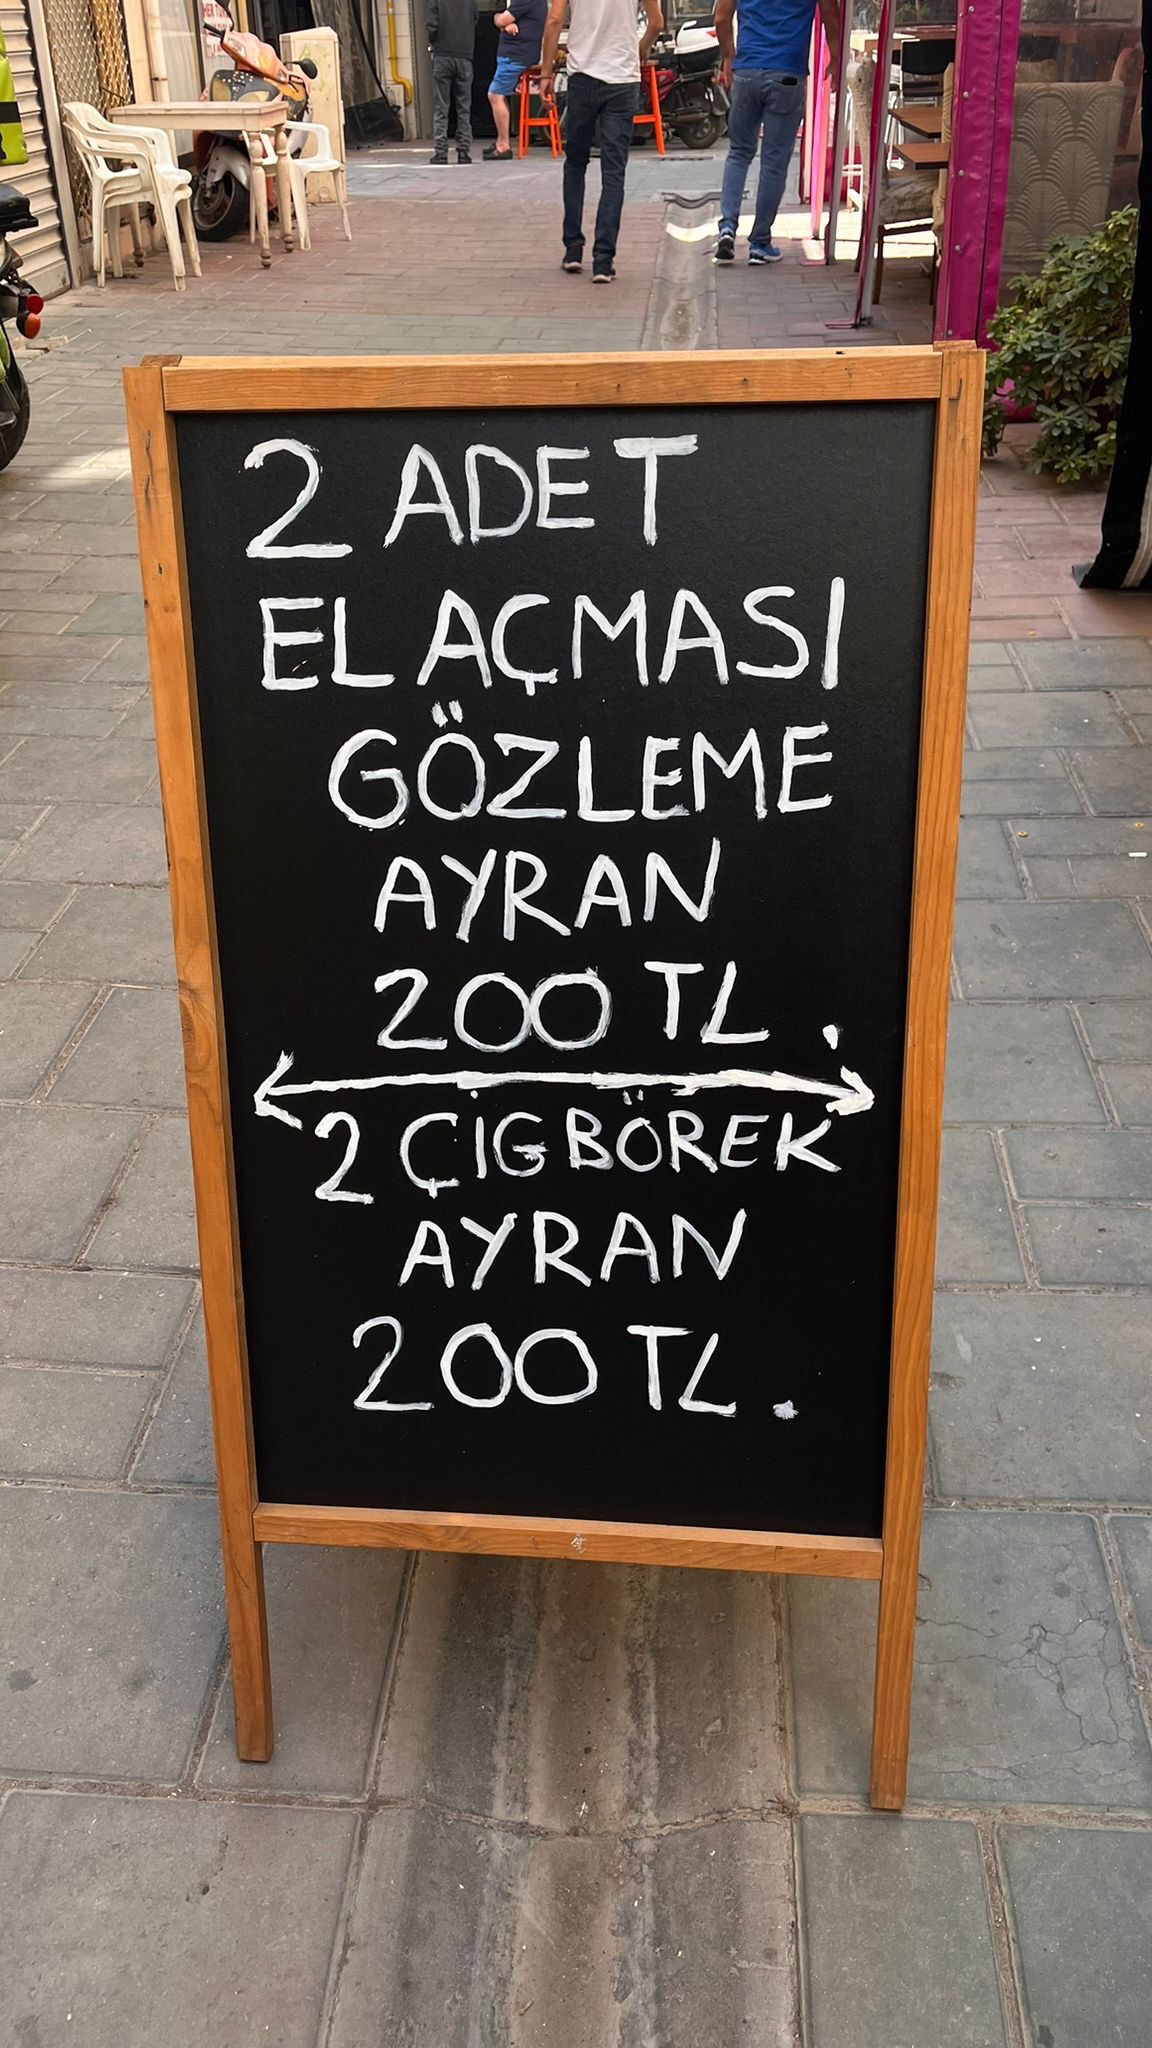 2 ADET
EL AÇMASI
GÖZLEME
AYRAN
200 TL.
2 ÇİGBÖREK
AYRAN
200 TL.